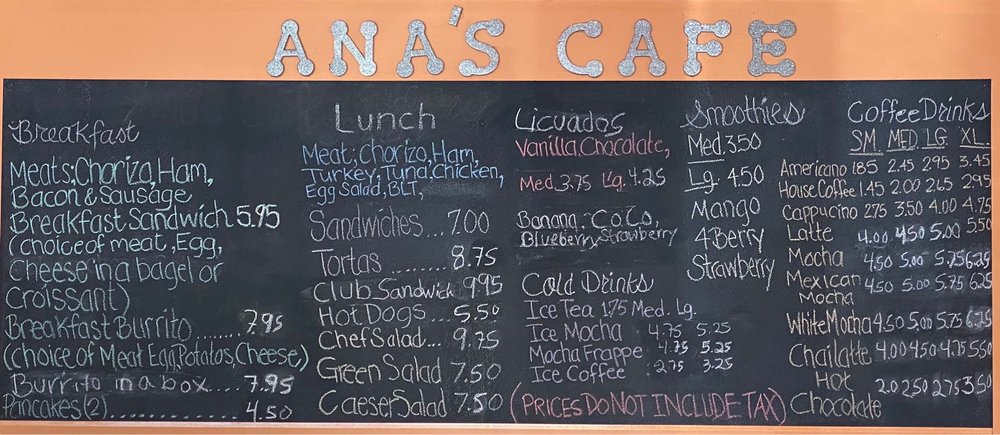 ANA'S CAFE
Breakfast
Meats; Chorizo, Ham,
Bacon & Sausage
Breakfast Sandwich 5.95
(choice of meat, Egg,
Cheese in a bagel or
Croissant)
Breakfast Burrito ...... 7.95
(choice of Meat Egg, Potatos, Cheese)
Burrito in a box .... 7.95
Pancakes (2) ............. 4.50
Lunch
Meat; Chorizo, Ham,
Turkey, Tuna, Chicken,
Egg Salad, BLT,
Sandwiches... 7.00
Tortas ........ 8.75
Club Sandwick 9.95
Hot Dogs .... 5.50
Chef Salad... 9.75
Green Salad 7.50
Caeser Salad 7.50
Licuados
Vanilla, Chocolate,
Med. 3.75 Lg. 4.25
Banana, CoCo,
Blueberry Strawberry
Cold Drinks
Ice Tea 1.75 Med. Lg.
Ice Mocha 4.75 5.25
Mocha Frappe 4.75 5.25
Ice Coffee 2.75 3.25
(PRICES DO NOT INCLUDE TAX)
Smoothies
Med. 3.50
Lg. 4.50
Mango
4 Berry
Strawberry
Coffee Drinks
SM MED. LG. XL.
Americano 1.85 2.45 2.95 3.45
House Coffee 1.45 2.00 2.65 2.95
Cappucino 2.75 3.50 4.00 4.75
Latte 4.00 4.50 5.00 5.50
Mocha 4.50 5.00 5.75 6.25
Mexican 4.50 5.00 5.75 6.25
Mocha
White Mocha 4.50 5.00 5.75 6.25
Chai latte 4.00 4.50 4.75 5.50
Hot 2.0 2.50 2.75 3.50
Chocolate